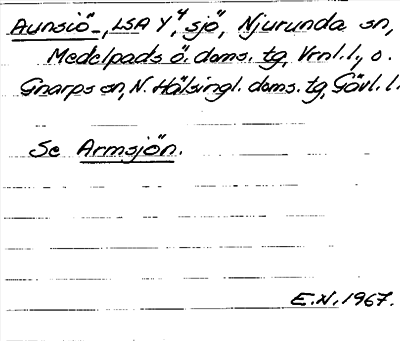 Aunsiö-, LSA Y⁴, sjö, Njurunda sn,
Medelpads ö. doms. tg, Vrnl.l., o.
Gnarps sn, N. Hälsingl. doms. tg, Gävl. l.
Se Armsjön.
E.N. 1967.